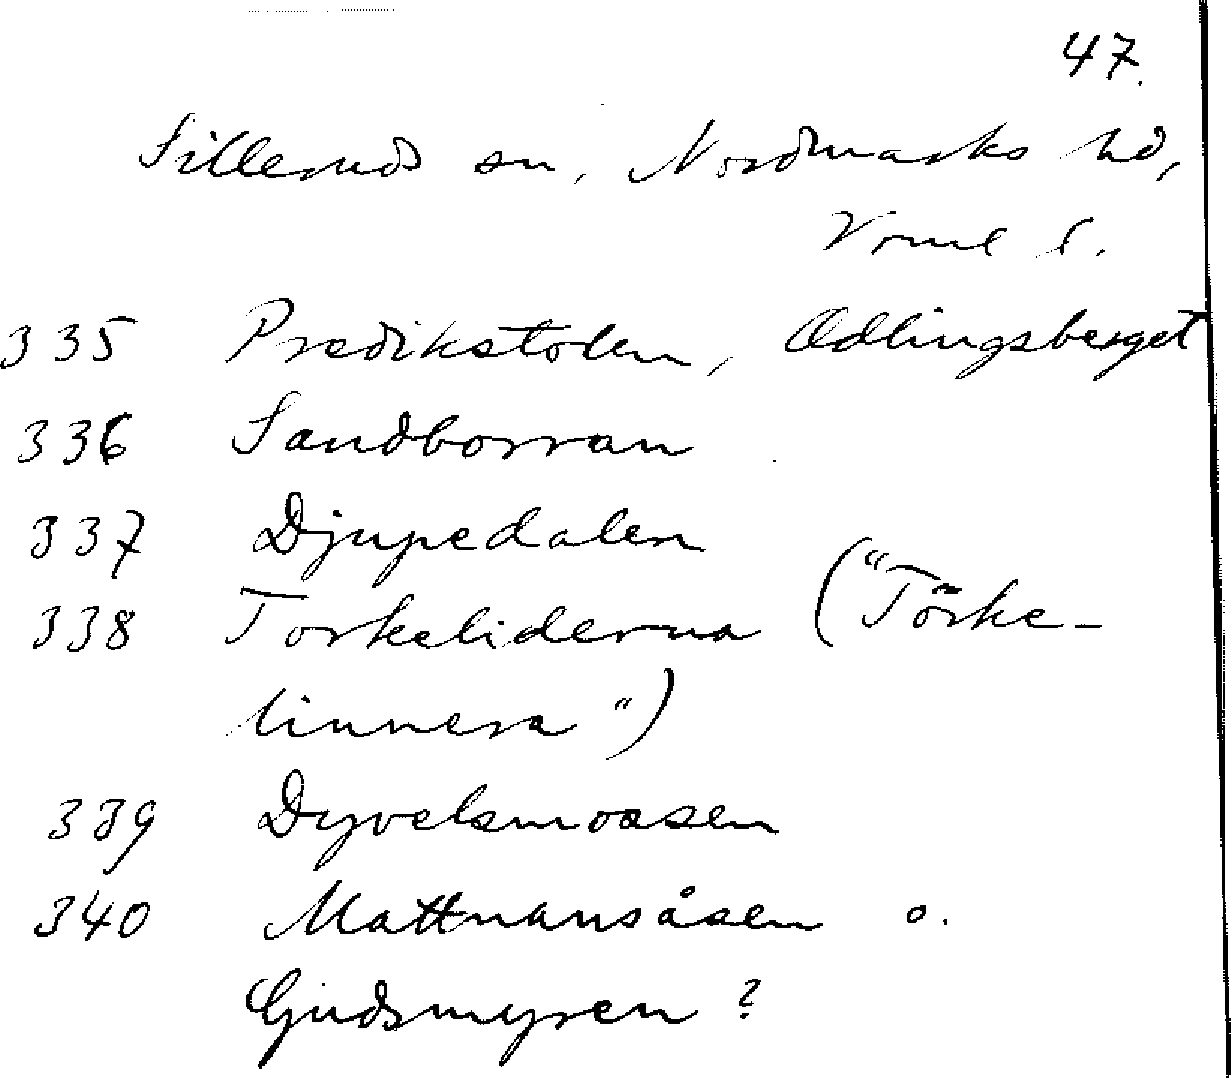 47.
Silleruds sn, Nordmarks hd,
Vrml l.
335 Predikstolen, Ödlingsberget
336 Sandborran
337 Djupedalen
338 Torkeliderna ("Törke-
linnera")
339 Dyvelsmossen
340 Mattnansåsen o.
Gudsmyren?